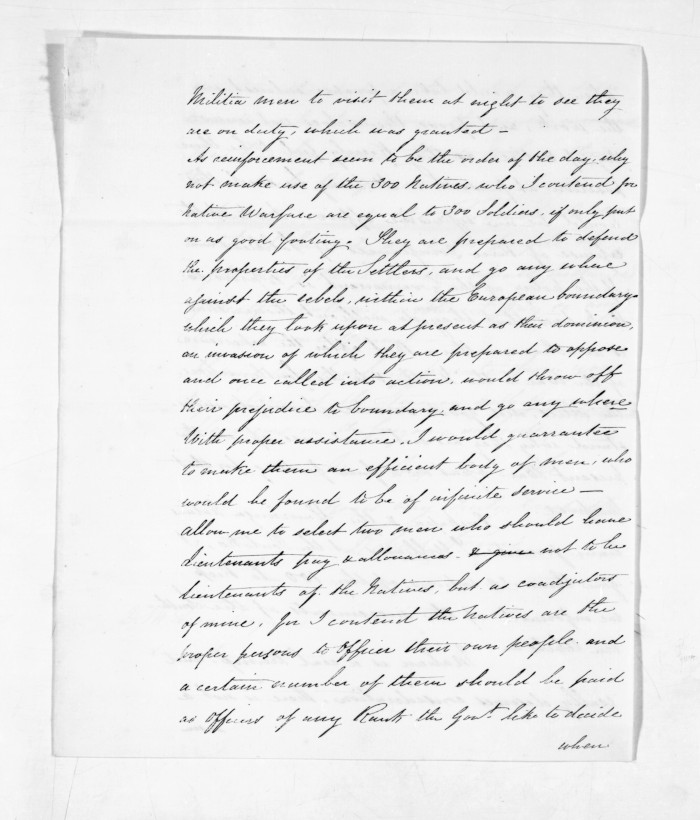 Militia men to visit them at night to see they
are on duty, which was granted —
As reinforcement seem to be the order of the day, why
not make use of the 300 Natives, who I contend for
Native Warfare are equal to 300 Soldiers, if only put
on as good footing. They are prepared to defend
the properties of the Settlers, and go any where
against the rebels, within the European boundary.
which they look upon at present as their dominion,
an invasion of which they are prepared to oppose
and once called into action, would throw off
their prejudice to boundary and go any where
With proper assistance, I would guarrantee
to make them an efficient body of men, who
would be found to be of infinite service —
Allow me to select two men who should have
Lieutenants pay & allowances. & give not to be
Lieutenants of the Natives, but as coadjutors
of mine, for I contend the Natives are the
proper persons to Officer their own people and
a certain number of them should be paid
as Officers of any Rank the Govt. like to decide
when